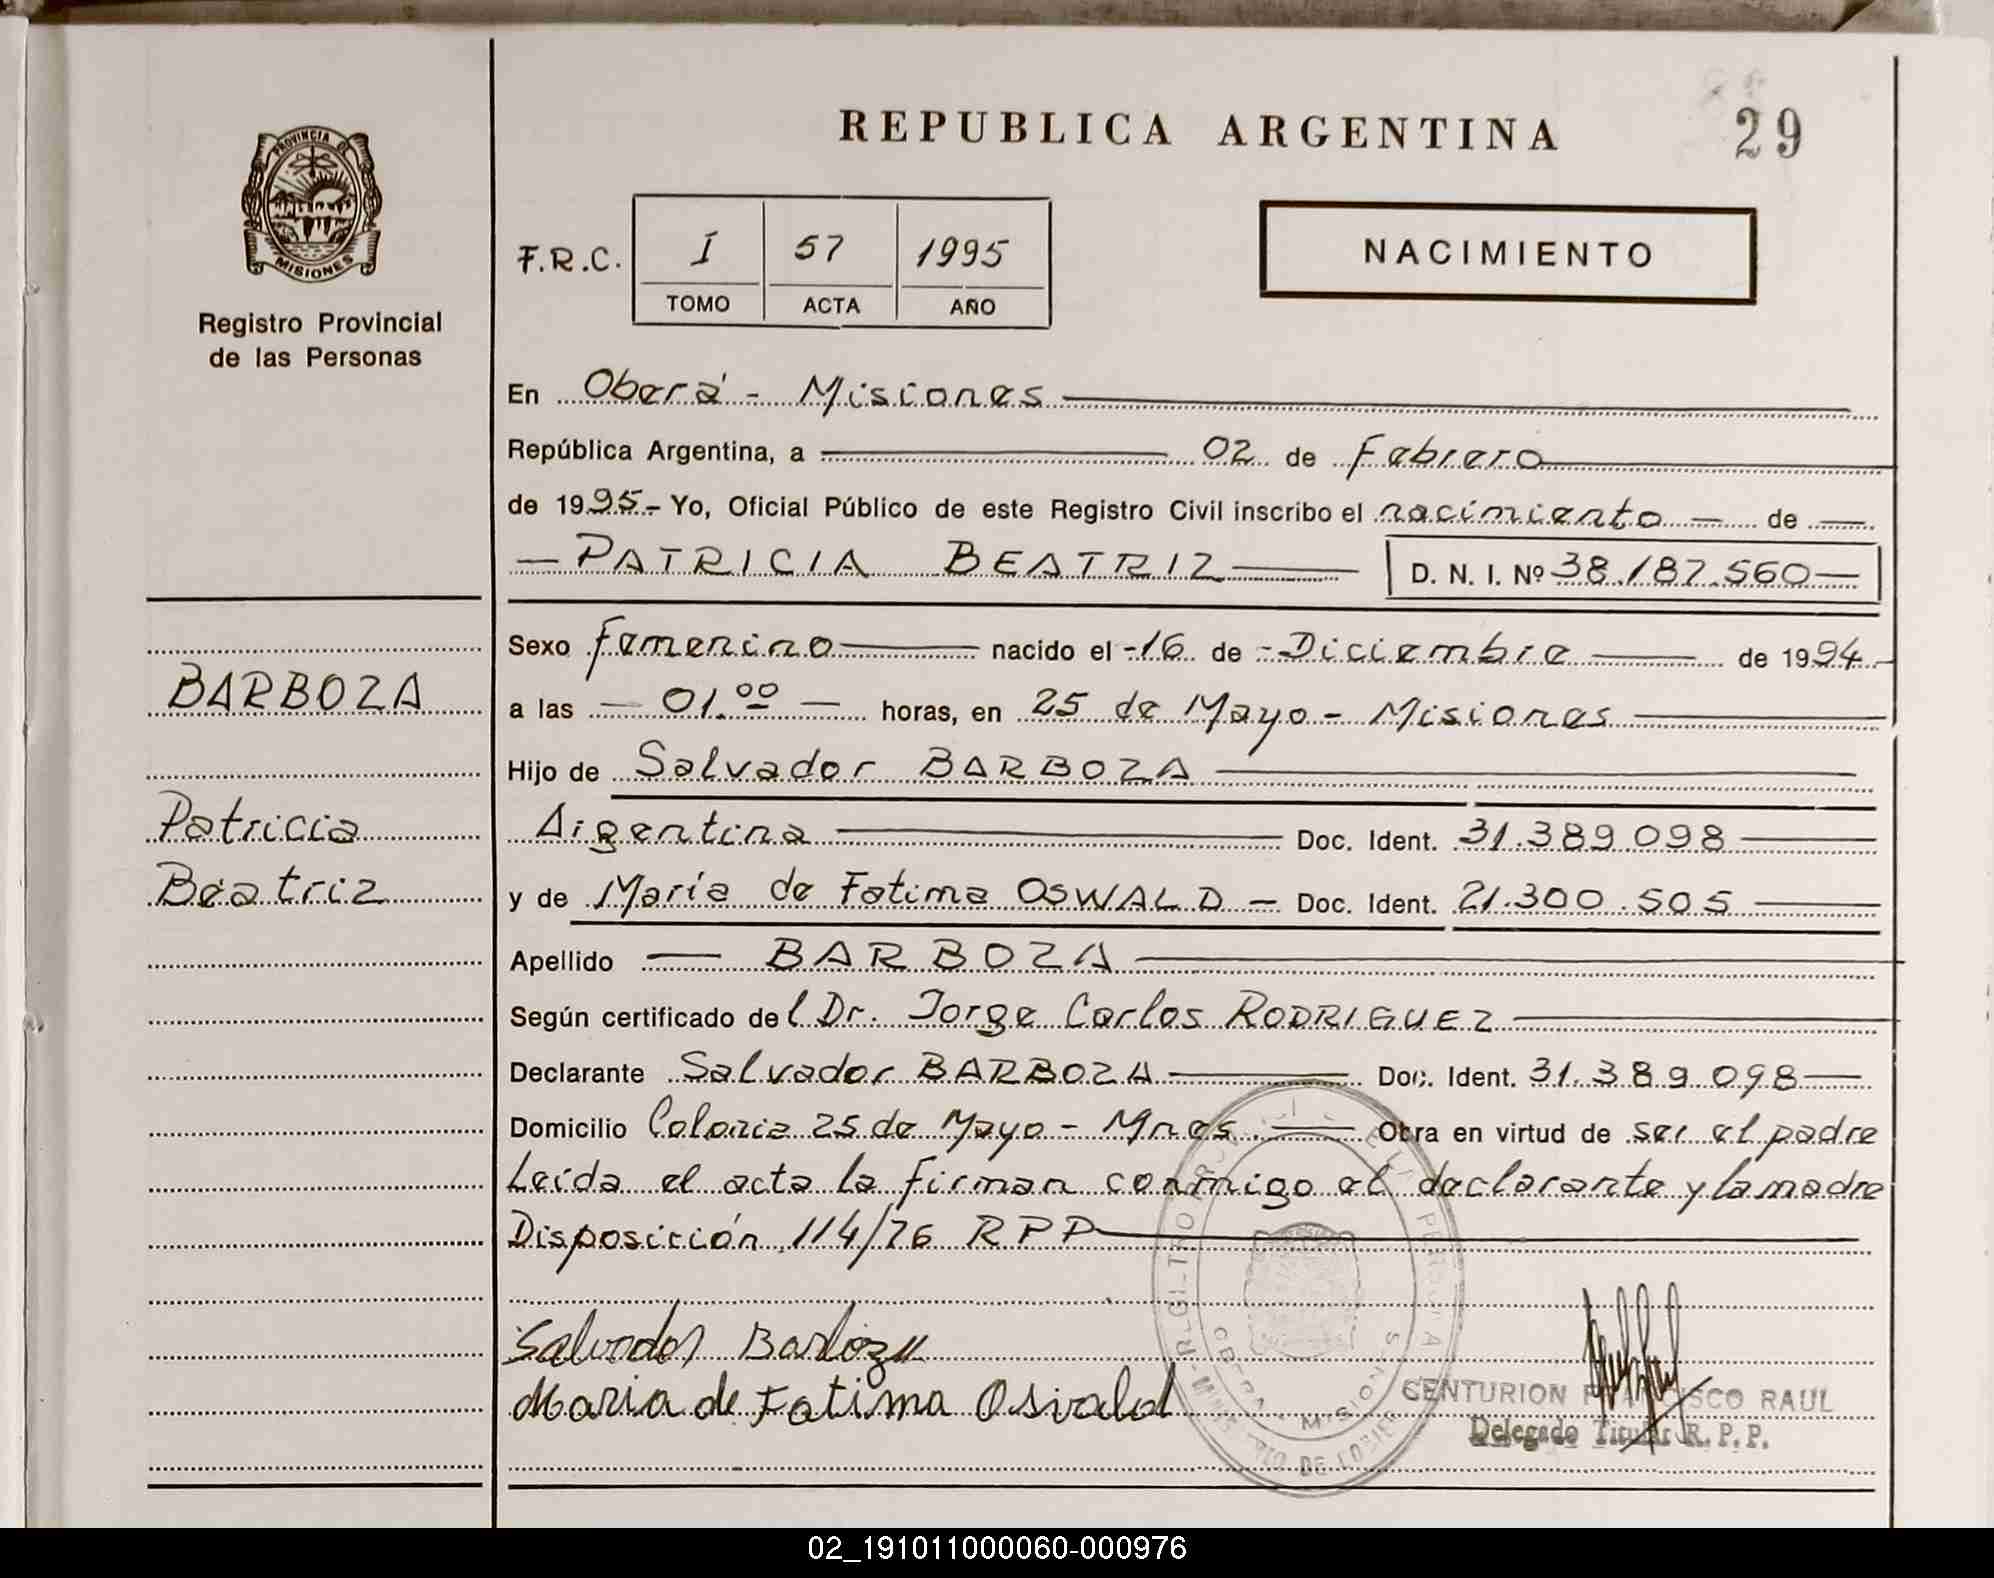 REPUBLICA ARGENTINA
29
PROVINCIA D
MISIONES
Registro Provincial
de las Personas
F.R.C. I 57 1995
TOMO ACTA AÑO
NACIMIENTO
En Oberá - Misiones
República Argentina, a 02 de Febrero
de 1995.- Yo, Oficial Público de este Registro Civil inscribo el nacimiento - de -
- PATRICIA BEATRIZ - D. N. I. Nº 38.187.560 -
Sexo femenino nacido el -16 de - Diciembre de 1994.-
BARBOZA
a las - 01.00 - horas, en 25 de Mayo - Misiones
Hijo de Salvador BARBOZA
Patricia
Argentina Doc. Ident. 31.389.098
Beatriz
y de María de Fatima OSWALD - Doc. Ident. 21.300.505
Apellido - BARBOZA
Según certificado del Dr. Jorge Carlos RODRIGUEZ
Declarante Salvador BARBOZA Doc. Ident. 31.389.098
Domicilio Colonia 25 de Mayo - Mnes. Obra en virtud de ser el padre
Leída el acta la firman conmigo el declarante y la madre
Disposición 114/76 RPP
Salvador Barboza
Maria de Fatima Osvald
OBERA - MISIONES
CENTURION FRANCISCO RAUL
Delegado Titular R.P.P.
02_191011000060-000976